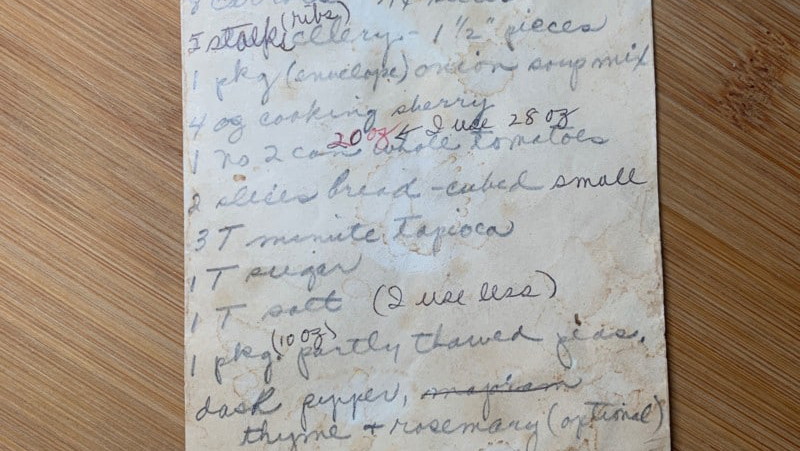 (ribs)
5 stalks cellery - 1 1/2" pieces
1 pkg (envelope) onion soup mix
4 oz cooking sherry
20 oz ← I use 28 oz
1 no 2 can whole tomatoes
2 slices bread - cubed small
3 T minute tapioca
1 T sugar
1 T salt (I use less)
(10 oz)
1 pkg. partly thawed peas.
dash pepper, marjoram
thyme + rosemary (optional)